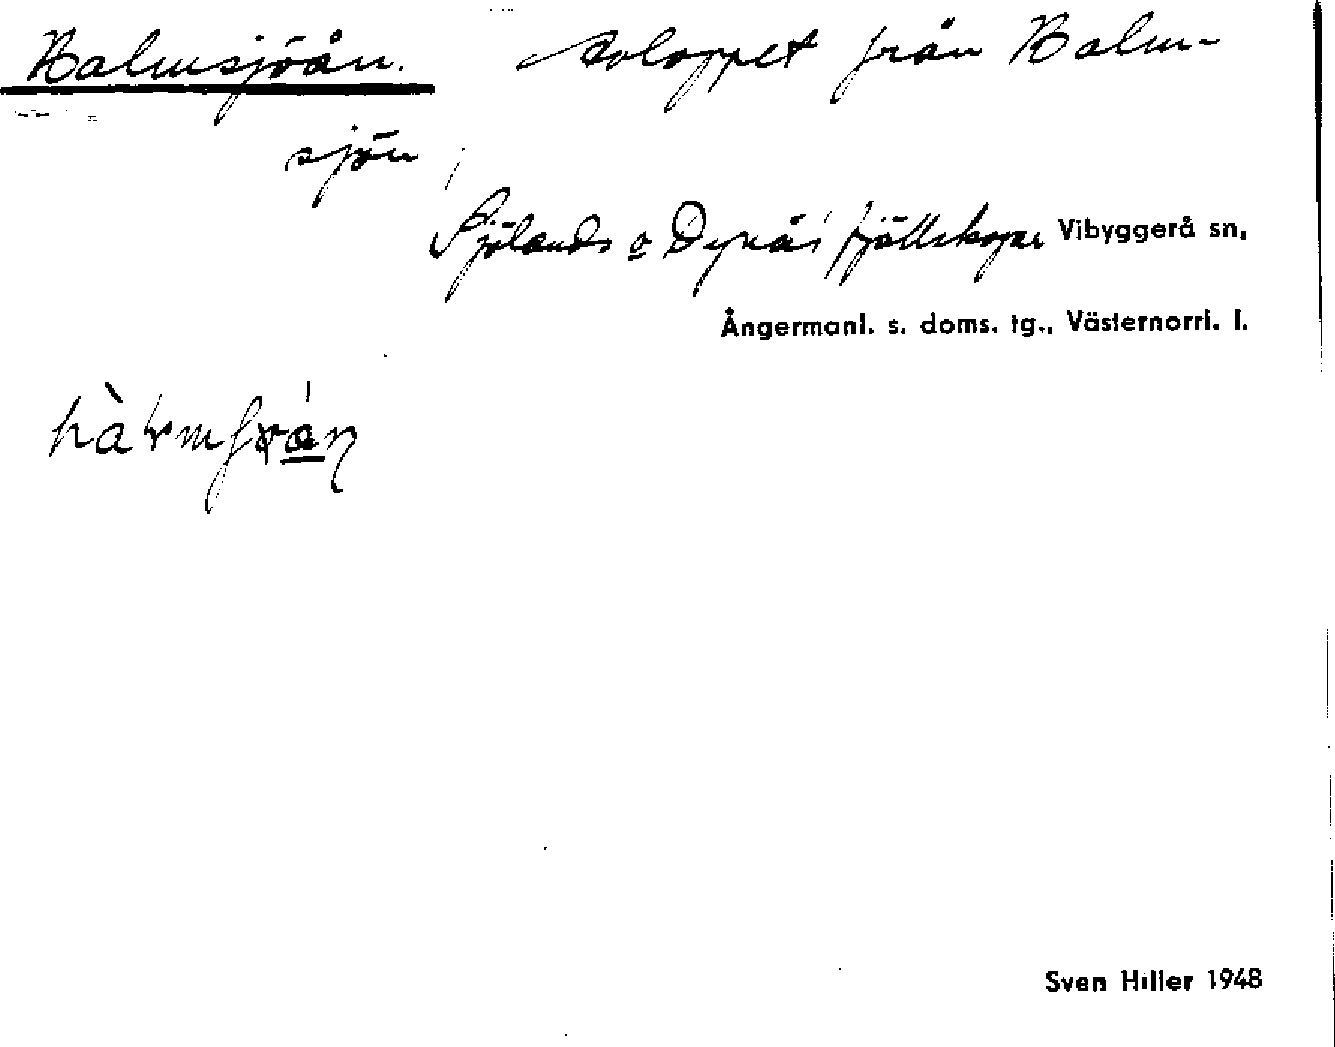 Balmsjöån. Avloppet från Balm-
sjön
Sjölands o Dynäs fjällskogar Vibyggerå sn,
Ångermanl. s. doms. tg., Västernorrl. l.
Sven Hiller 1948